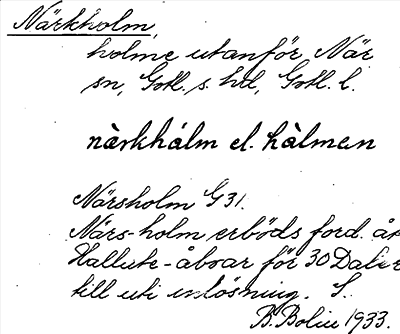 Närkholm,
holme utanför När
sn, Gotl. s. hd, Gotl. l.
nàrkhálm el. hàlmen
Närsholm G 31.
Närs-holm erböds ford. åt
Hallute-åboar för 30 Daler
till uti inlösning. S.
B. Bolin 1933.